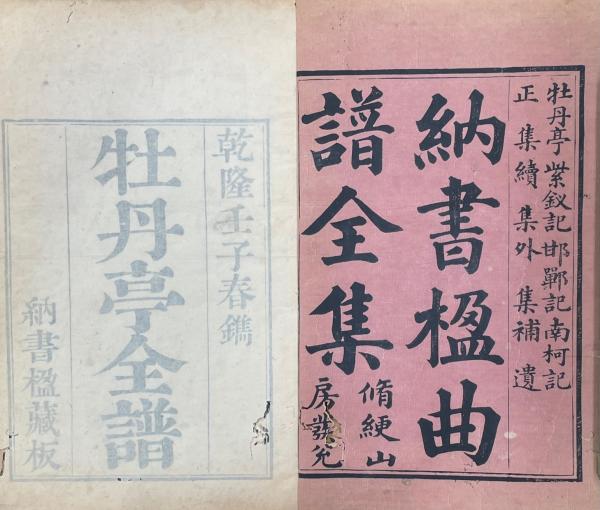 牡丹亭紫釵記邯鄲記南柯記
正集續集外集補遺
納書楹曲
譜全集
脩綆山
房發兌
乾隆壬子春鐫
牡丹亭全譜
納書楹藏板